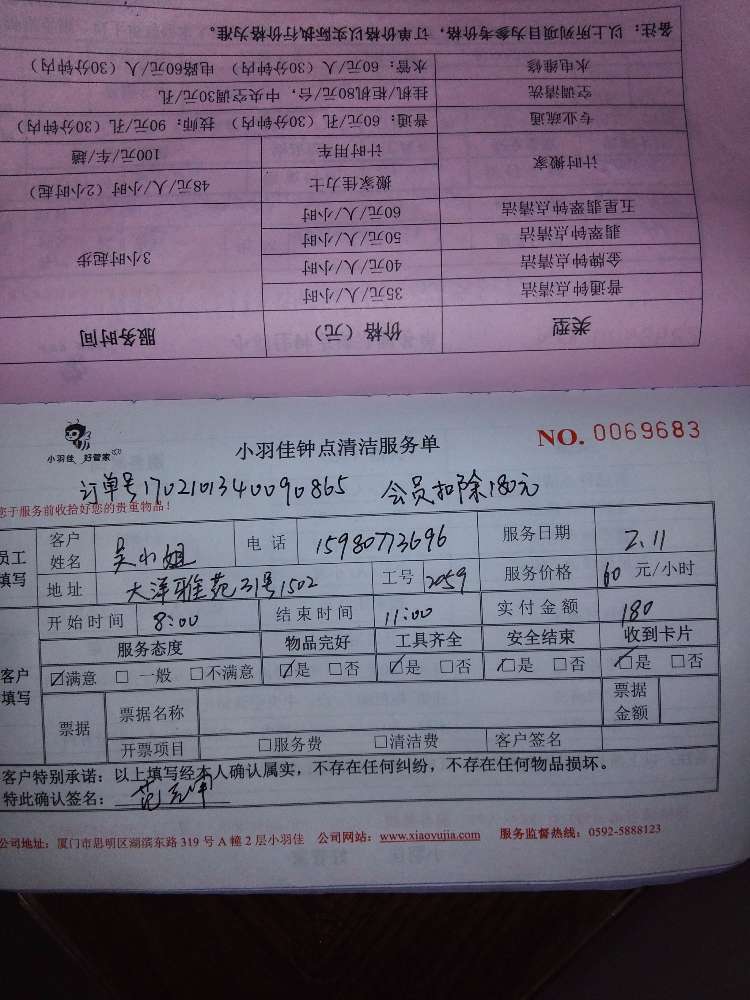 备注：以上所列项目为参考价格，订单价格以实际执行价格为准。
水电维修 水管：60元/人（30分钟内） 电路60元/人（30分钟内）
空调清洗 挂机/柜机80元/台，中央空调30元/孔
专业疏通 普通：60元/孔（30分钟内） 技师：90元/孔（30分钟内）
计时搬家 计时用车 100元/车/趟
搬家佳力士 48元/人/小时（2小时起）
五星翡翠钟点清洁 60元/人/小时
翡翠钟点清洁 50元/人/小时 3小时起步
金牌钟点清洁 40元/人/小时
普通钟点清洁 35元/人/小时
类型 价格（元） 服务时间
小羽佳 好管家
小羽佳钟点清洁服务单
NO. 0069683
订单号1702101340090865 会员扣除180元
您于服务前收拾好您的贵重物品！
员工填写 客户姓名 吴小姐 电话 15980773696 服务日期 2.11
地址 大洋雅苑31号1502 工号 2059 服务价格 60 元/小时
开始时间 8:00 结束时间 11:00 实付金额 180
客户填写 服务态度 物品完好 工具齐全 安全结束 收到卡片
☑满意 □一般 □不满意 ☑是 □否 ☑是 □否 ☑是 □否 ☑是 □否
票据 票据名称 票据金额
开票项目 □服务费 □清洁费 客户签名
客户特别承诺：以上填写经本人确认属实，不存在任何纠纷，不存在任何物品损坏。
特此确认签名：
公司地址：厦门市思明区湖滨东路 319 号 A 幢 2 层小羽佳 公司网站：www.xiaoyujia.com 服务监督热线：0592-5888123